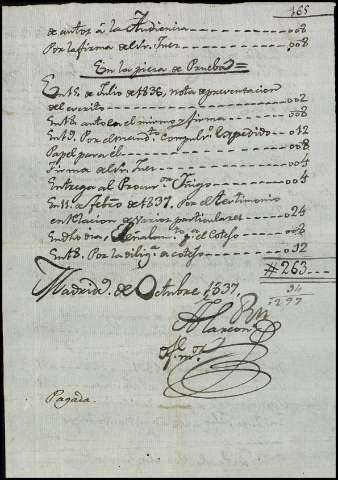 165
de autos á la Audiencia ------- 008
Por la firma del Sr. Juez ------- 008
En la pieza de Prueba =
En 15 de Julio de 1836, nota de presentacion
del escrito ------- 002
En 18. auto a el mismo y firma --- 008
En 19. Por el mandto. compuls. expedido -- 012
Papel para él ------- 008
Firma del Sr. Juez ------- 004
Entrega al Procur. Trigo ------- 004
En 11. de febro. de 1837. Por el Testimonio
en relacion de varios particulares ---- 024
En dho dia, Señalamto. pa. el cotejo --- 008
En 18. Por la dilig. de cotejo ---- 012
# 263 ---
34
297
Madrid de Octubre, 1837
Alarcon
Pagada.